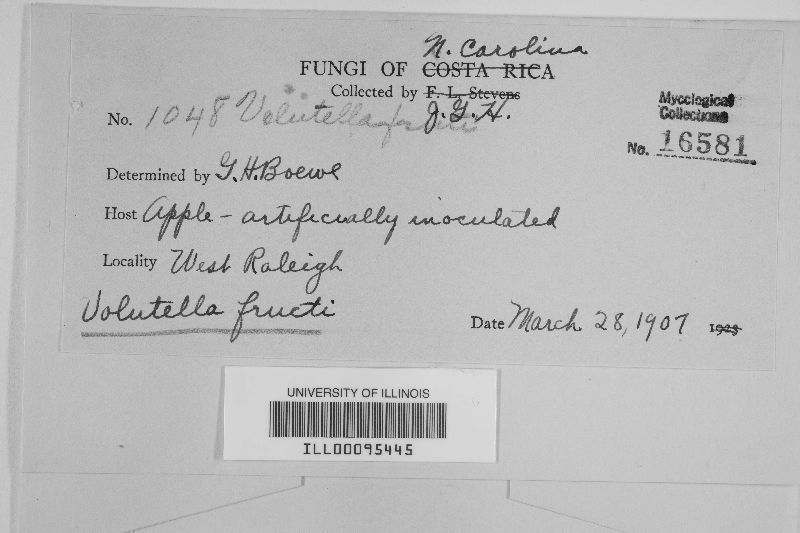 N. Carolina
FUNGI OF COSTA RICA
Collected by F. L. Stevens
J. G. H.
No. 1048 Volutella fructi
Mycological
Collections
No. 16581
Determined by G. H. Boewe
Host Apple - artificially inoculated
Locality West Raleigh
Volutella fructi
Date March 28, 1907 1923
UNIVERSITY OF ILLINOIS
ILL00095445